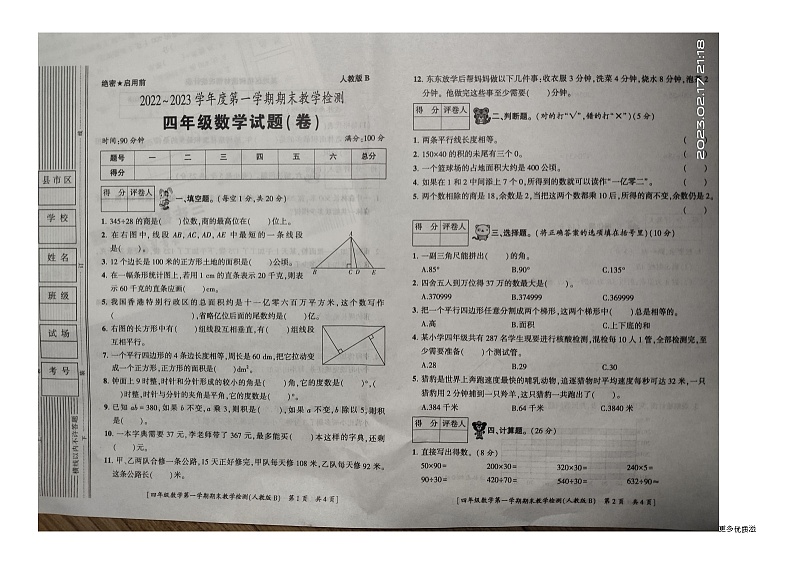 绝密★启用前
人教版 B
2022~2023 学年度第一学期期末教学检测
四年级数学试题(卷)
时间:90 分钟
满分:100 分
题号 一 二 三 四 五 六 总分
得分
得 分 评卷人
一、填空题。(每空 1 分,共 20 分)
1. 345÷28 的商是( )位数,商的最高位在( )位上。
2. 在右图中,线段 AB,AC,AD,AE 中最短的一条线段
是( )。
A
B C D E
3. 12 个边长是 100 米的正方形土地的面积是( )公顷。
4. 在一幅条形统计图上,若用 1 cm 的直条表示 20 千克,则表
示 60 千克的直条应画( )cm。
5. 我国香港特别行政区的总面积约是十一亿零六百万平方米,这个数写作
( ),省略亿位后面的尾数约是( )亿。
6. 右图的长方形中有( )组线段互相垂直,有( )组线段
互相平行。
7. 一个平行四边形的 4 条边长度相等,周长是 60 dm,把它拉动变
成一个正方形,正方形的面积是( )dm².
8. 钟面上 9 时整,时针和分针形成的较小的角是( )角,它的度数是( )°,( )
时整,时针与分针的夹角是平角,它的度数是( )°。
9. 已知 ab=380,如果 b 不变,a 乘 3,则积是( ),如果 a 不变,b 除以 5,则积
是( )。
10. 一本字典需要 37 元,李老师带了 367 元,最多能买( )本这样的字典,还剩
( )元。
11. 甲、乙两队合修一条公路,15 天正好修完,甲队每天修 108 米,乙队每天修 92 米。
这条公路长( )米。
[四年级数学第一学期期末教学检测(人教版 B) 第 1 页 共 4 页]
县市区
学 校
姓 名
班 级
试 场
考 号
横线以内不许答题
12. 东东放学后帮妈妈做以下几件事:收衣服 3 分钟,洗菜 4 分钟,烧水 8 分钟,泡茶 2
分钟。他做完这些事至少需要( )分钟。
得 分 评卷人
二、判断题。(对的打“√”,错的打“×”)(5 分)
1. 两条平行线长度相等。 (
2. 150×40 的积的末尾有三个 0。 (
3. 一个篮球场的占地面积大约是 400 公顷。 (
4. 如果在 1 和 2 中间添上 7 个 0,所得到的数就可以读作“一亿零二”。 (
5. 两个数相除的商是 18,余数是 2,当把这两个数都乘 10 后,所得的商不变,余数仍是 2。
( )
得 分 评卷人
三、选择题。(将正确答案的选项填在括号里)(10 分)
1. 一副三角尺能拼出( )的角。
A.85° B.90° C.135°
2. 四舍五入到万位得 37 万的数最大是( )。
A.370999 B.374999 C.369999
3. 把一个平行四边形任意分割成两个梯形,这两个梯形中( )总是相等的。
A.高 B.面积 C.上下底的和
4. 某小学四年级共有 287 名学生现要进行核酸检测,混检每 10 人 1 管,全部检测完,至
少需要准备( )个测试管。
A.28 B.29 C.30
5. 猎豹是世界上奔跑速度最快的哺乳动物,追逐猎物时平均速度每秒可达 32 米,一只
猎豹用 2 分钟捕到一只羚羊,这只猎豹一共跑出了( )。
A.384 千米 B.64 千米 C.3840 米
得 分 评卷人
四、计算题。(26 分)
1. 直接写出得数。(8 分)
50×90= 200×30= 320×30= 240×5=
90÷30= 420÷70= 540÷30= 632÷90≈
[四年级数学第一学期期末教学检测(人教版 B) 第 2 页 共 4 页]
2023.02.17 21:18